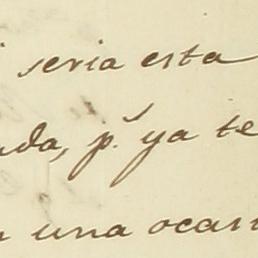 seria esta
da, p.s ya te
una ocasi